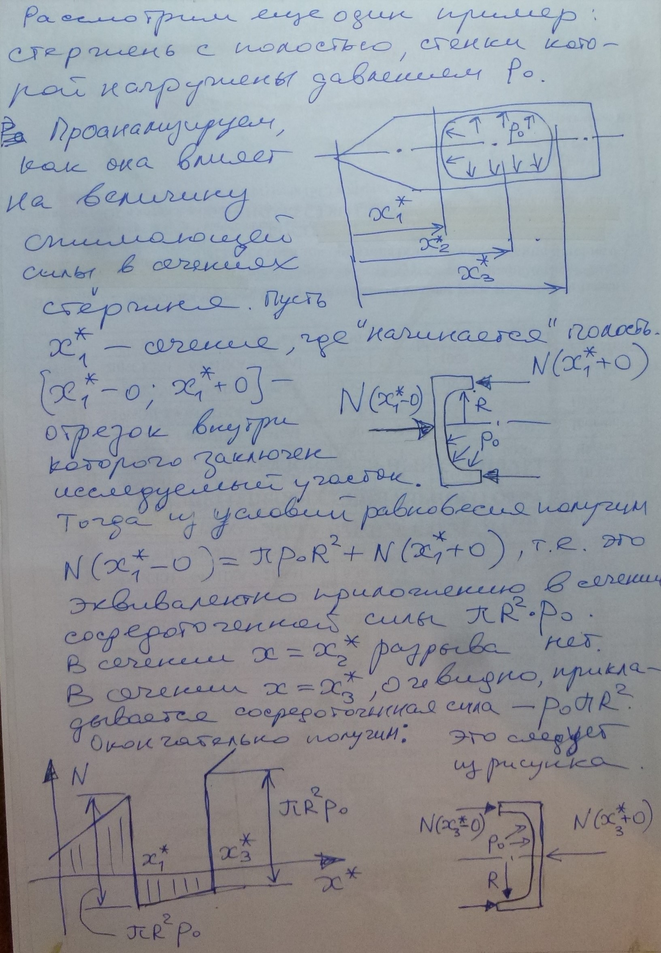 Рассмотрим еще один пример:
стержень с полостью, стенки кото-
рой нагружены давлением P₀.
Проанализируем,
как она влияет
на величину
сжимающей
силы в сечениях
стержня. Пусть
P₀
x₁*
x₂*
x₃*
x₁* – сечение, где "начинается" полость.
[x₁*-0; x₁*+0] –
отрезок внутри
которого заключен
исследуемый участок.
N(x₁*-0)
N(x₁*+0)
R
P₀
Тогда из условий равновесия получим
N(x₁*-0) = πp₀R² + N(x₁*+0), т.е. это
эквивалентно приложению в сечении
сосредоточенной силы πR²·p₀.
В сечении x = x₂* разрыва нет.
В сечении x = x₃*, очевидно, прикла-
дывается сосредоточенная сила – p₀πR².
Окончательно получим:
Это следует
из рисунка.
N
x₁*
x₃*
x*
πR²p₀
πR²p₀
N(x₃*-0)
N(x₃*+0)
P₀
R